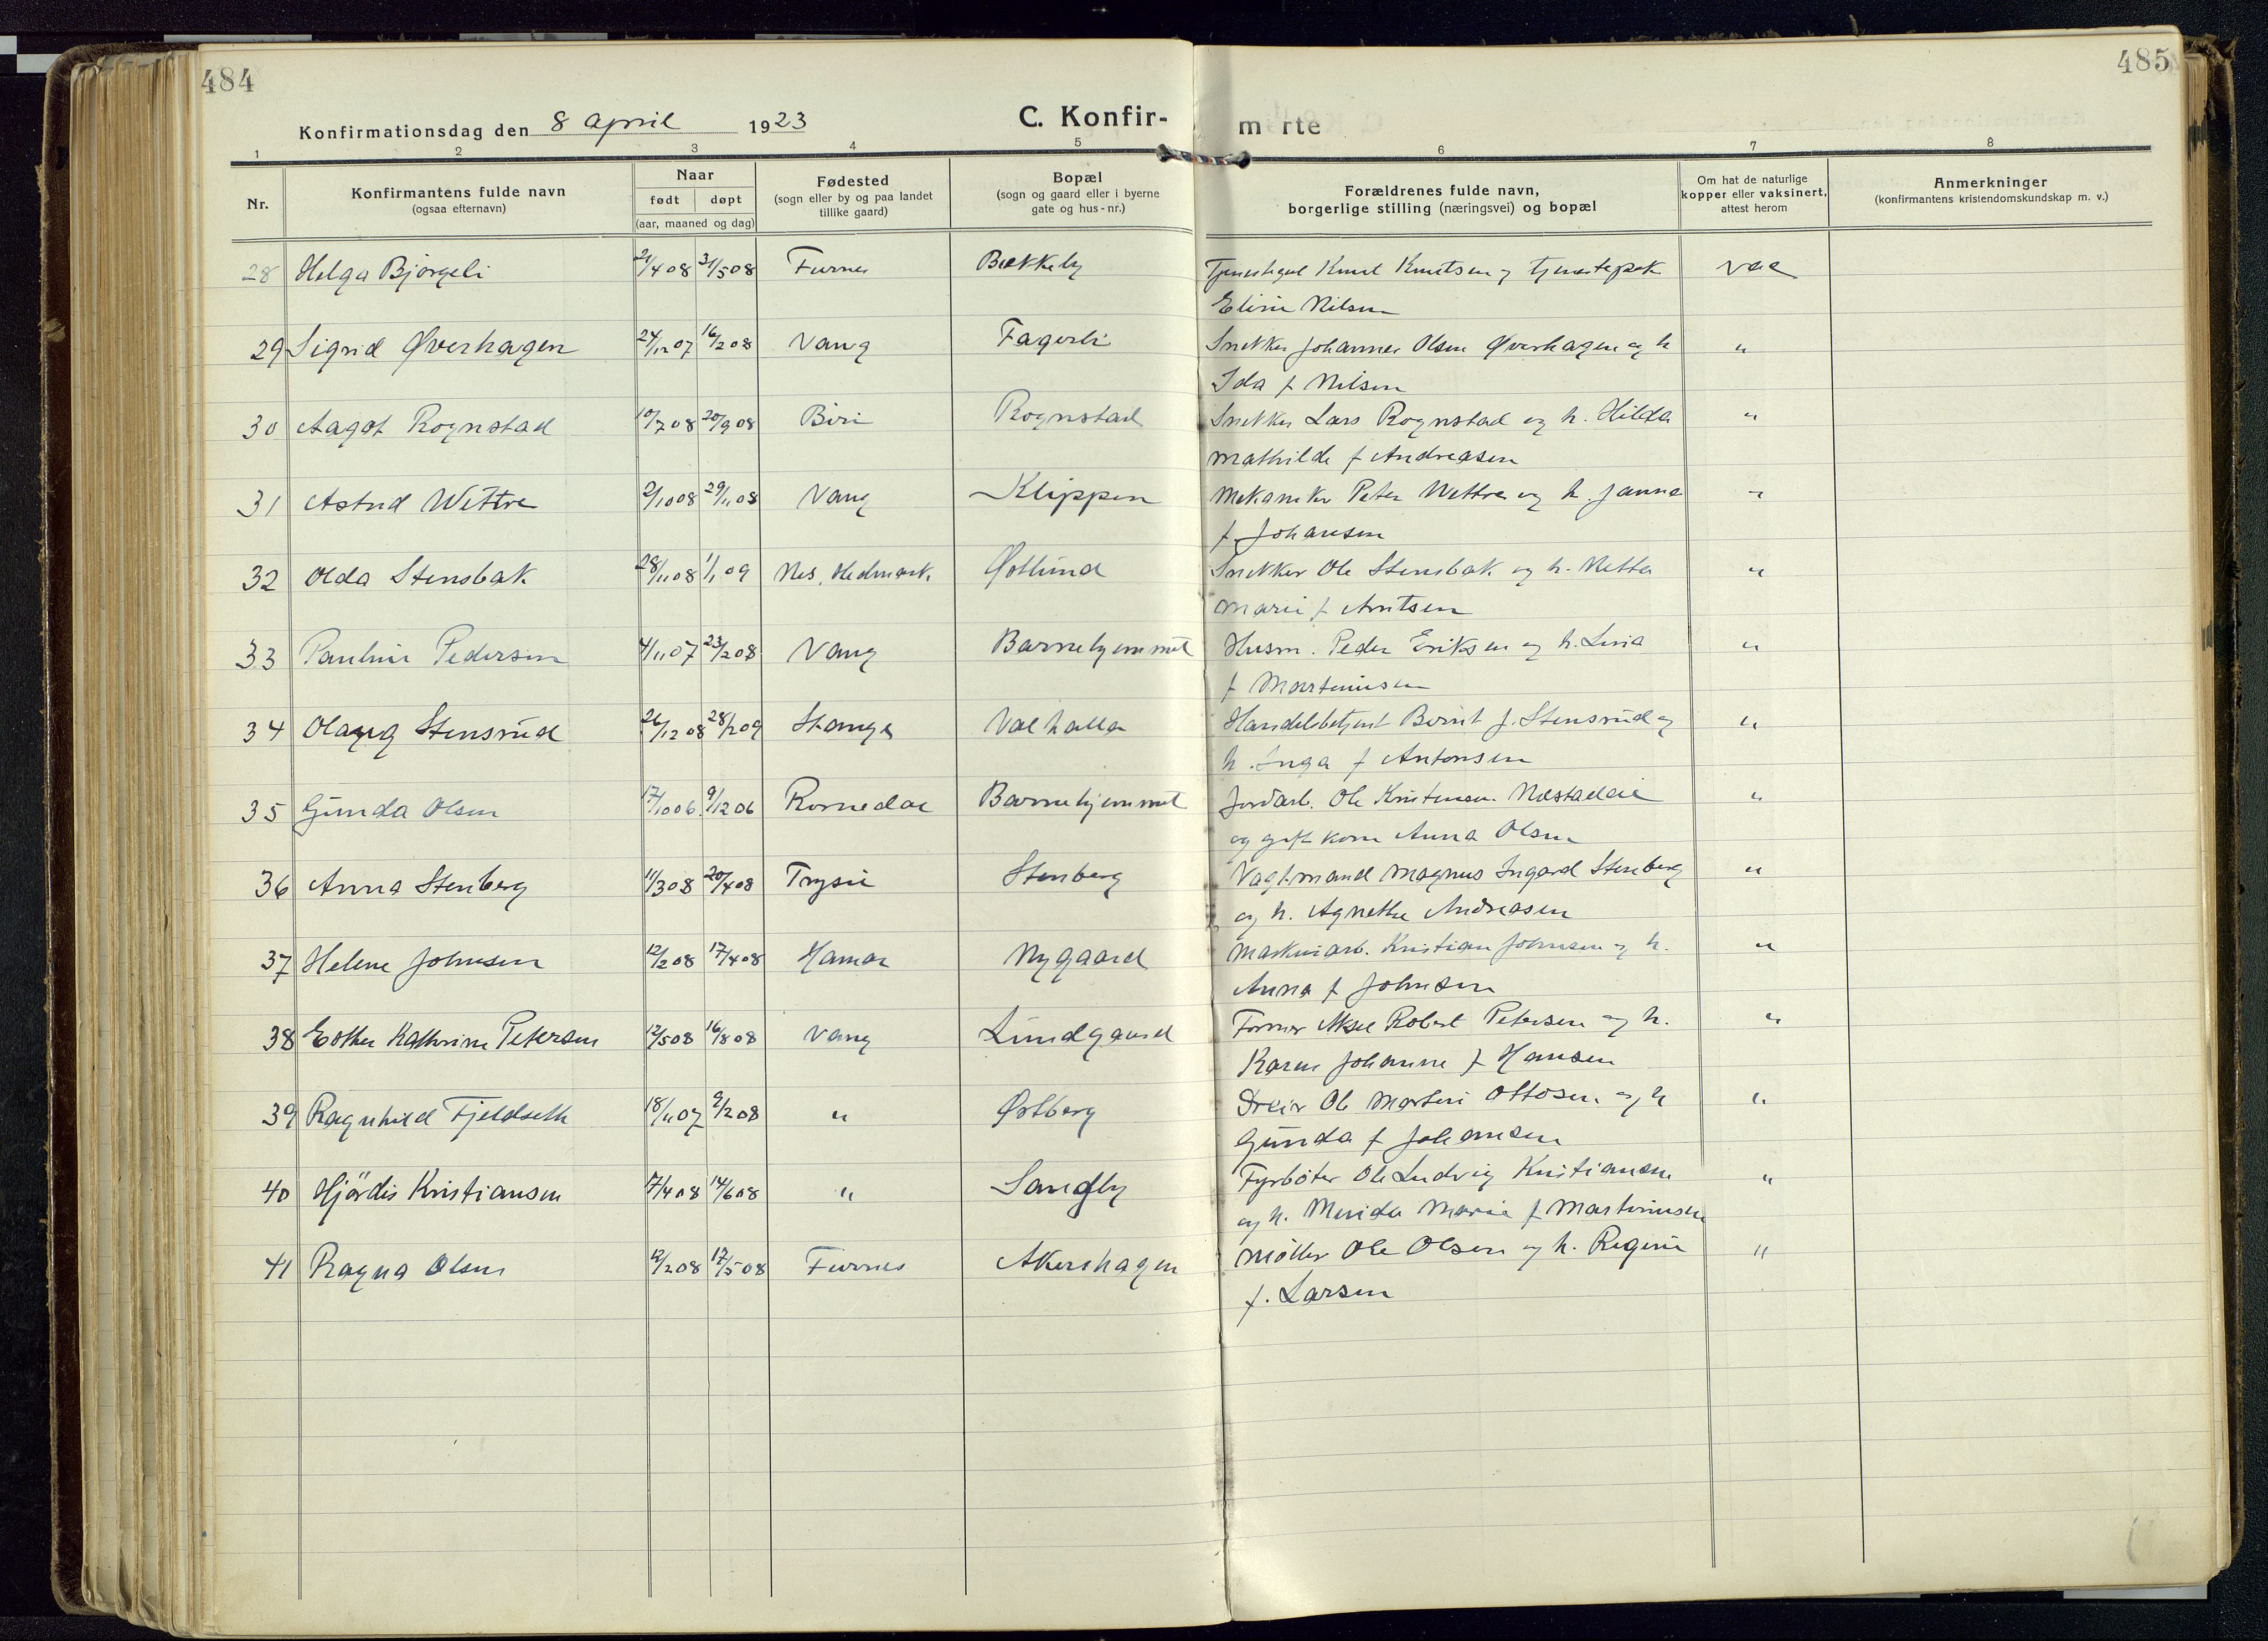 484
485
Konfirmationsdag den 8 april 1923
C. Konfir- m rte
1 2 3 4 5 6 7 8
Nr.
Konfirmantens fulde navn
(ogsaa efternavn)
Naar
født døpt
(aar, maaned og dag)
Fødested
(sogn eller by og paa landet
tillike gaard)
Bopæl
(sogn og gaard eller i byerne
gate og hus-nr.)
Forældrenes fulde navn,
borgerlige stilling (næringsvei) og bopæl
Om hat de naturlige
kopper eller vaksinert,
attest herom
Anmerkninger
(konfirmantens kristendomskundskap m. v.)
28 Helga Bjørgeli 21/4 08 31/5 08 Furnes Bækkeby Knut Knutsen og tjenestepik vac
Eline Nilsen
29 Sigrid Øverhagen 24/12 07 16/2 08 Vang Fagerli Snekker Johannes Olsen Øverhagen og h "
Ida f Nilsen
30 Aagot Rognstad 10/7 08 20/9 08 Biri Rognstad Snekker Lars Rognstad og h. Hilda "
Mathilde f Andreasen
31 Astrid Wettre 2/10 08 29/11 08 Vang Klippen Mekaniker Peter Wettre og h. Janna "
f Johansen
32 Olda Stensbak 28/11 08 1/1 09 Nes, Hedmark Østlund Snekker Ole Stensbak og h. Netta "
Marie f Arntsen
33 Pauline Pedersen 4/11 07 23/2 08 Vang Barnehjemmet Husm. Peder Eriksen og h. Lina "
f Martinusen
34 Olaug Stensrud 26/12 08 28/2 09 Stange Valhalla Handelsbetjent Bernt J. Stensrud og "
h. Inga f Antonsen
35 Gunda Olsen 17/10 06 9/12 06 Romedal Barnehjemmet Jordarb. Ole Kristensen Næstadeie "
og gift kone Anna Olsen
36 Anna Stenberg 11/3 08 20/4 08 Trysil Stenberg Vagtmand Magnus Ingard Stenberg "
og h. Agnethe Andreasen
37 Helene Johnsen 12/2 08 17/4 08 Hamar Nygaard Maskinarb. Kristian Johnsen og h. "
Anna f Johnsen
38 Esther Kathrine Petersen 12/5 08 16/8 08 Vang Lundgaard Former Aksel Robert Petersen og h. "
Karen Johanne f Hansen
39 Ragnhild Fjeldseth 18/11 07 9/2 08 " Østberg Dreier Ole Martin Ottosen og h "
Gunda f Johansen
40 Hjørdis Kristiansen 7/4 08 14/6 08 " Sangby Fyrbøter Ole Ludvig Kristiansen "
og h. Marie f Martinusen
41 Ragna Olsen 12/2 08 17/5 08 Furnes Akershagen Møller Ole Olsen og h. Regine "
f. Larsen